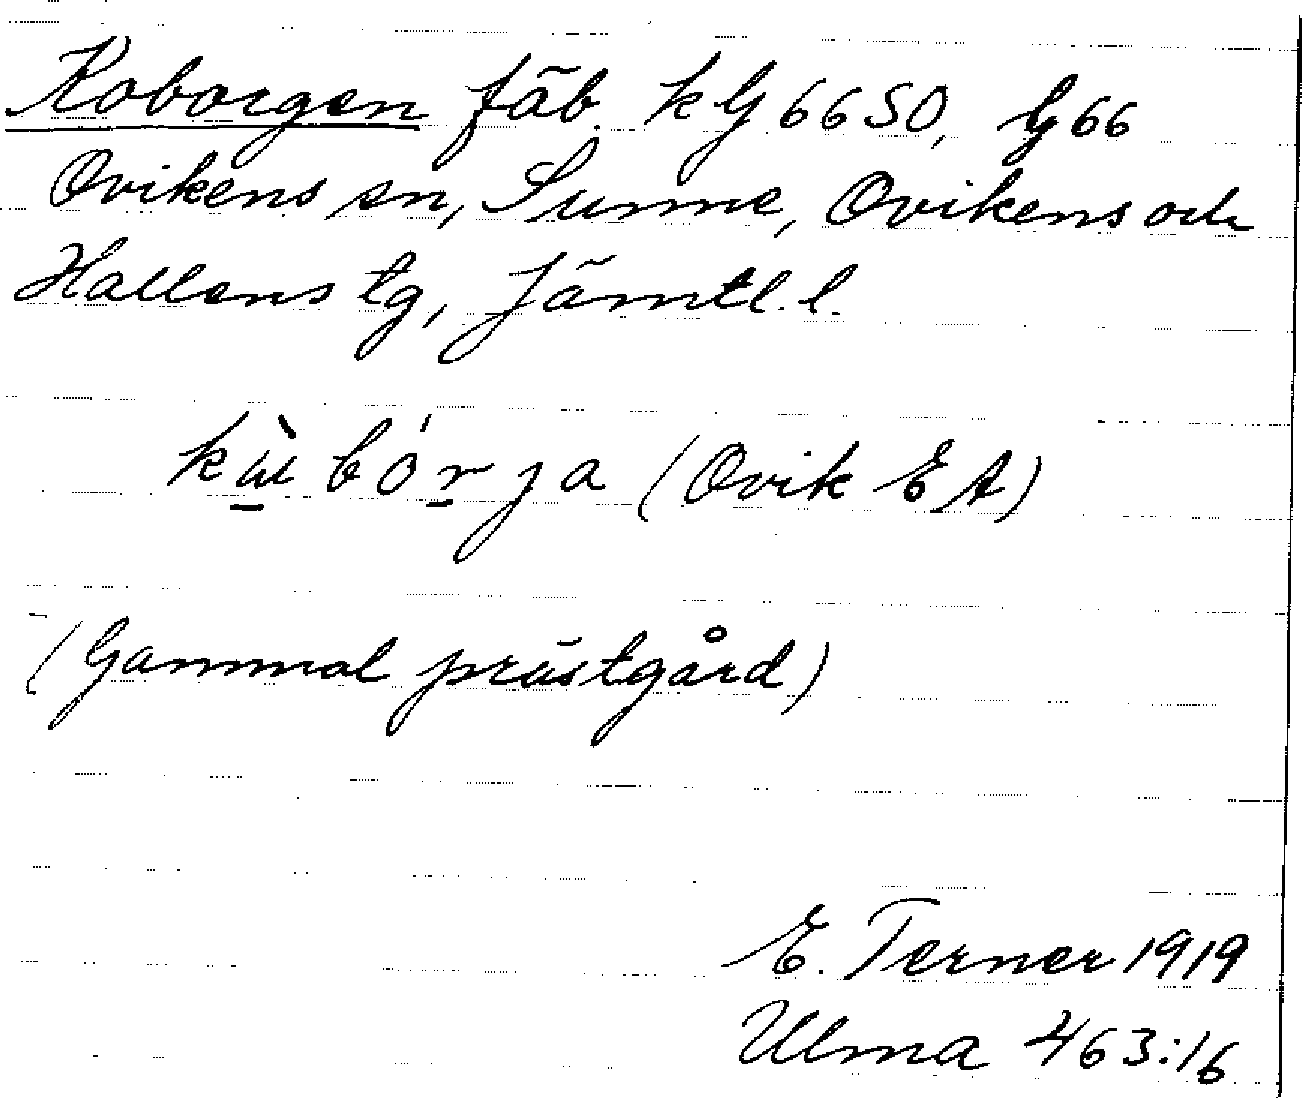 Koborgen fäb. kG 6650, G66
Ovikens sn, Sunne, Ovikens och
Hallens tg, Jämtl. l.
kù̱bóṟja (Ovik EA)
(Gammal prästgård)
E. Terner 1919
Ulma 463:16